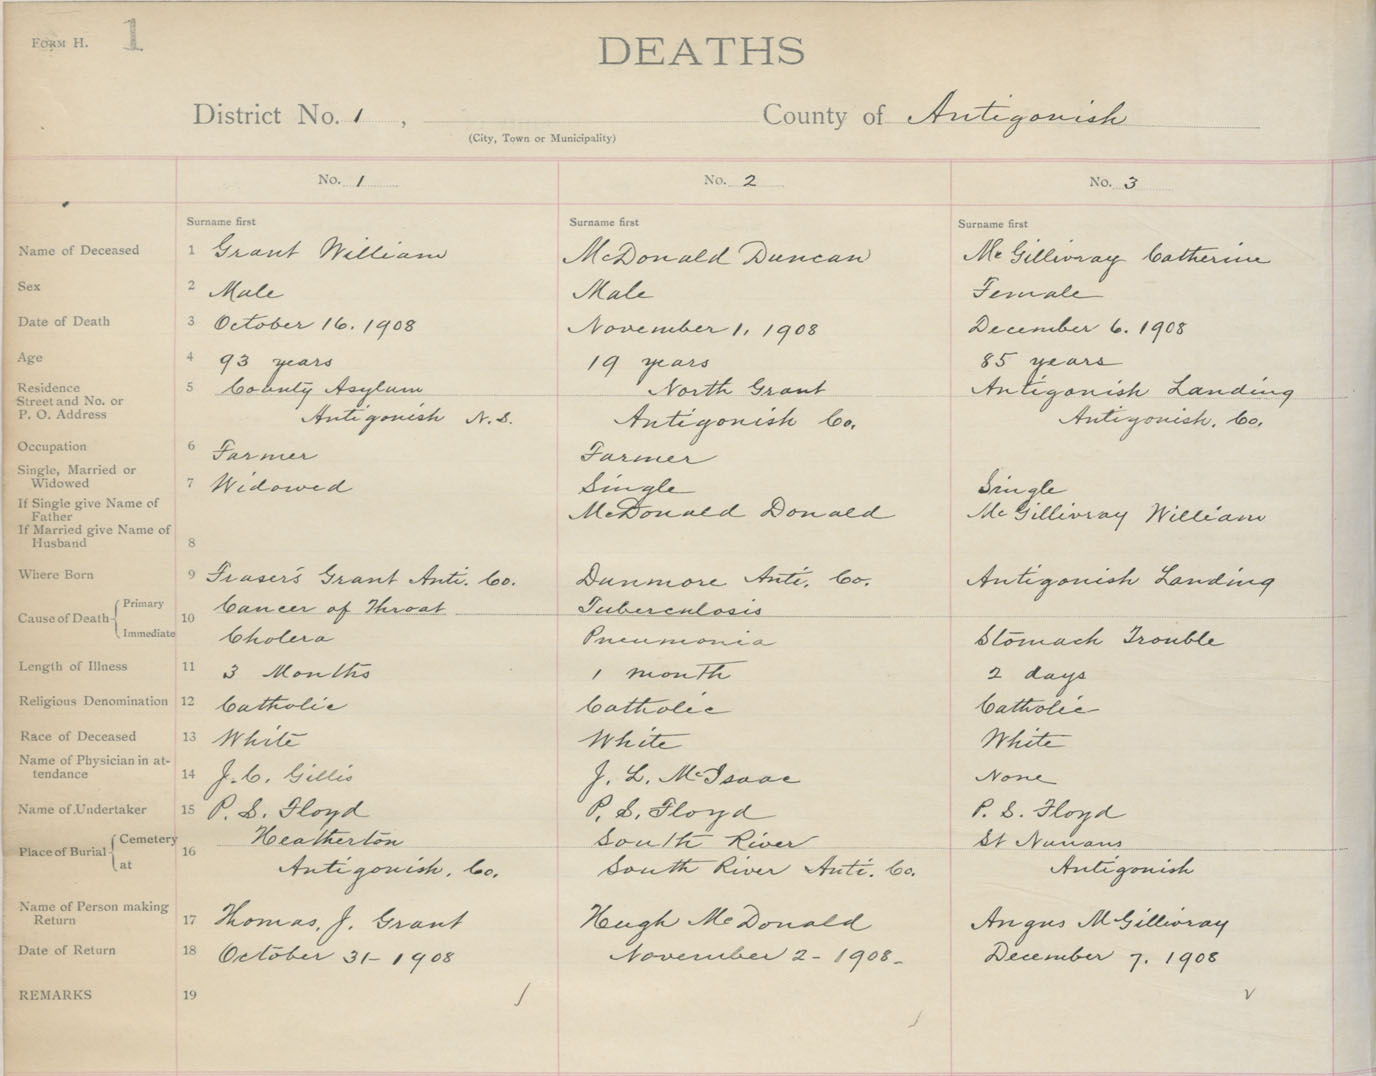 FORM H. 1
DEATHS
District No. 1 , County of Antigonish
(City, Town or Municipality)
No. 1 No. 2 No. 3
Surname first Surname first Surname first
Name of Deceased 1 Grant William McDonald Duncan McGillivray Catherine
Sex 2 Male Male Female
Date of Death 3 October 16. 1908 November 1, 1908 December 6. 1908
Age 4 93 years 19 years 85 years
Residence 5 County Asylum North Grant Antigonish Landing
Street and No. or
P. O. Address Antigonish N.S. Antigonish Co. Antigonish. Co.
Occupation 6 Farmer Farmer
Single, Married or
Widowed 7 Widowed Single Single
If Single give Name of
Father McDonald Donald McGillivray William
If Married give Name of
Husband 8
Where Born 9 Fraser's Grant Anti. Co. Dunmore Anti. Co. Antigonish Landing
Cause of Death Primary 10 Cancer of Throat Tuberculosis
Immediate Cholera Pneumonia Stomach Trouble
Length of Illness 11 3 Months 1 month 2 days
Religious Denomination 12 Catholic Catholic Catholic
Race of Deceased 13 White White White
Name of Physician in at-
tendance 14 J. C. Gillis J. L. McIsaac None
Name of Undertaker 15 P. S. Floyd P. S. Floyd P. S. Floyd
Place of Burial Cemetery 16 Heatherton South River St Ninians
at Antigonish. Co. South River Anti. Co. Antigonish
Name of Person making
Return 17 Thomas. J. Grant Hugh McDonald Angus McGillivray
Date of Return 18 October 31- 1908 November 2- 1908- December 7. 1908
REMARKS 19